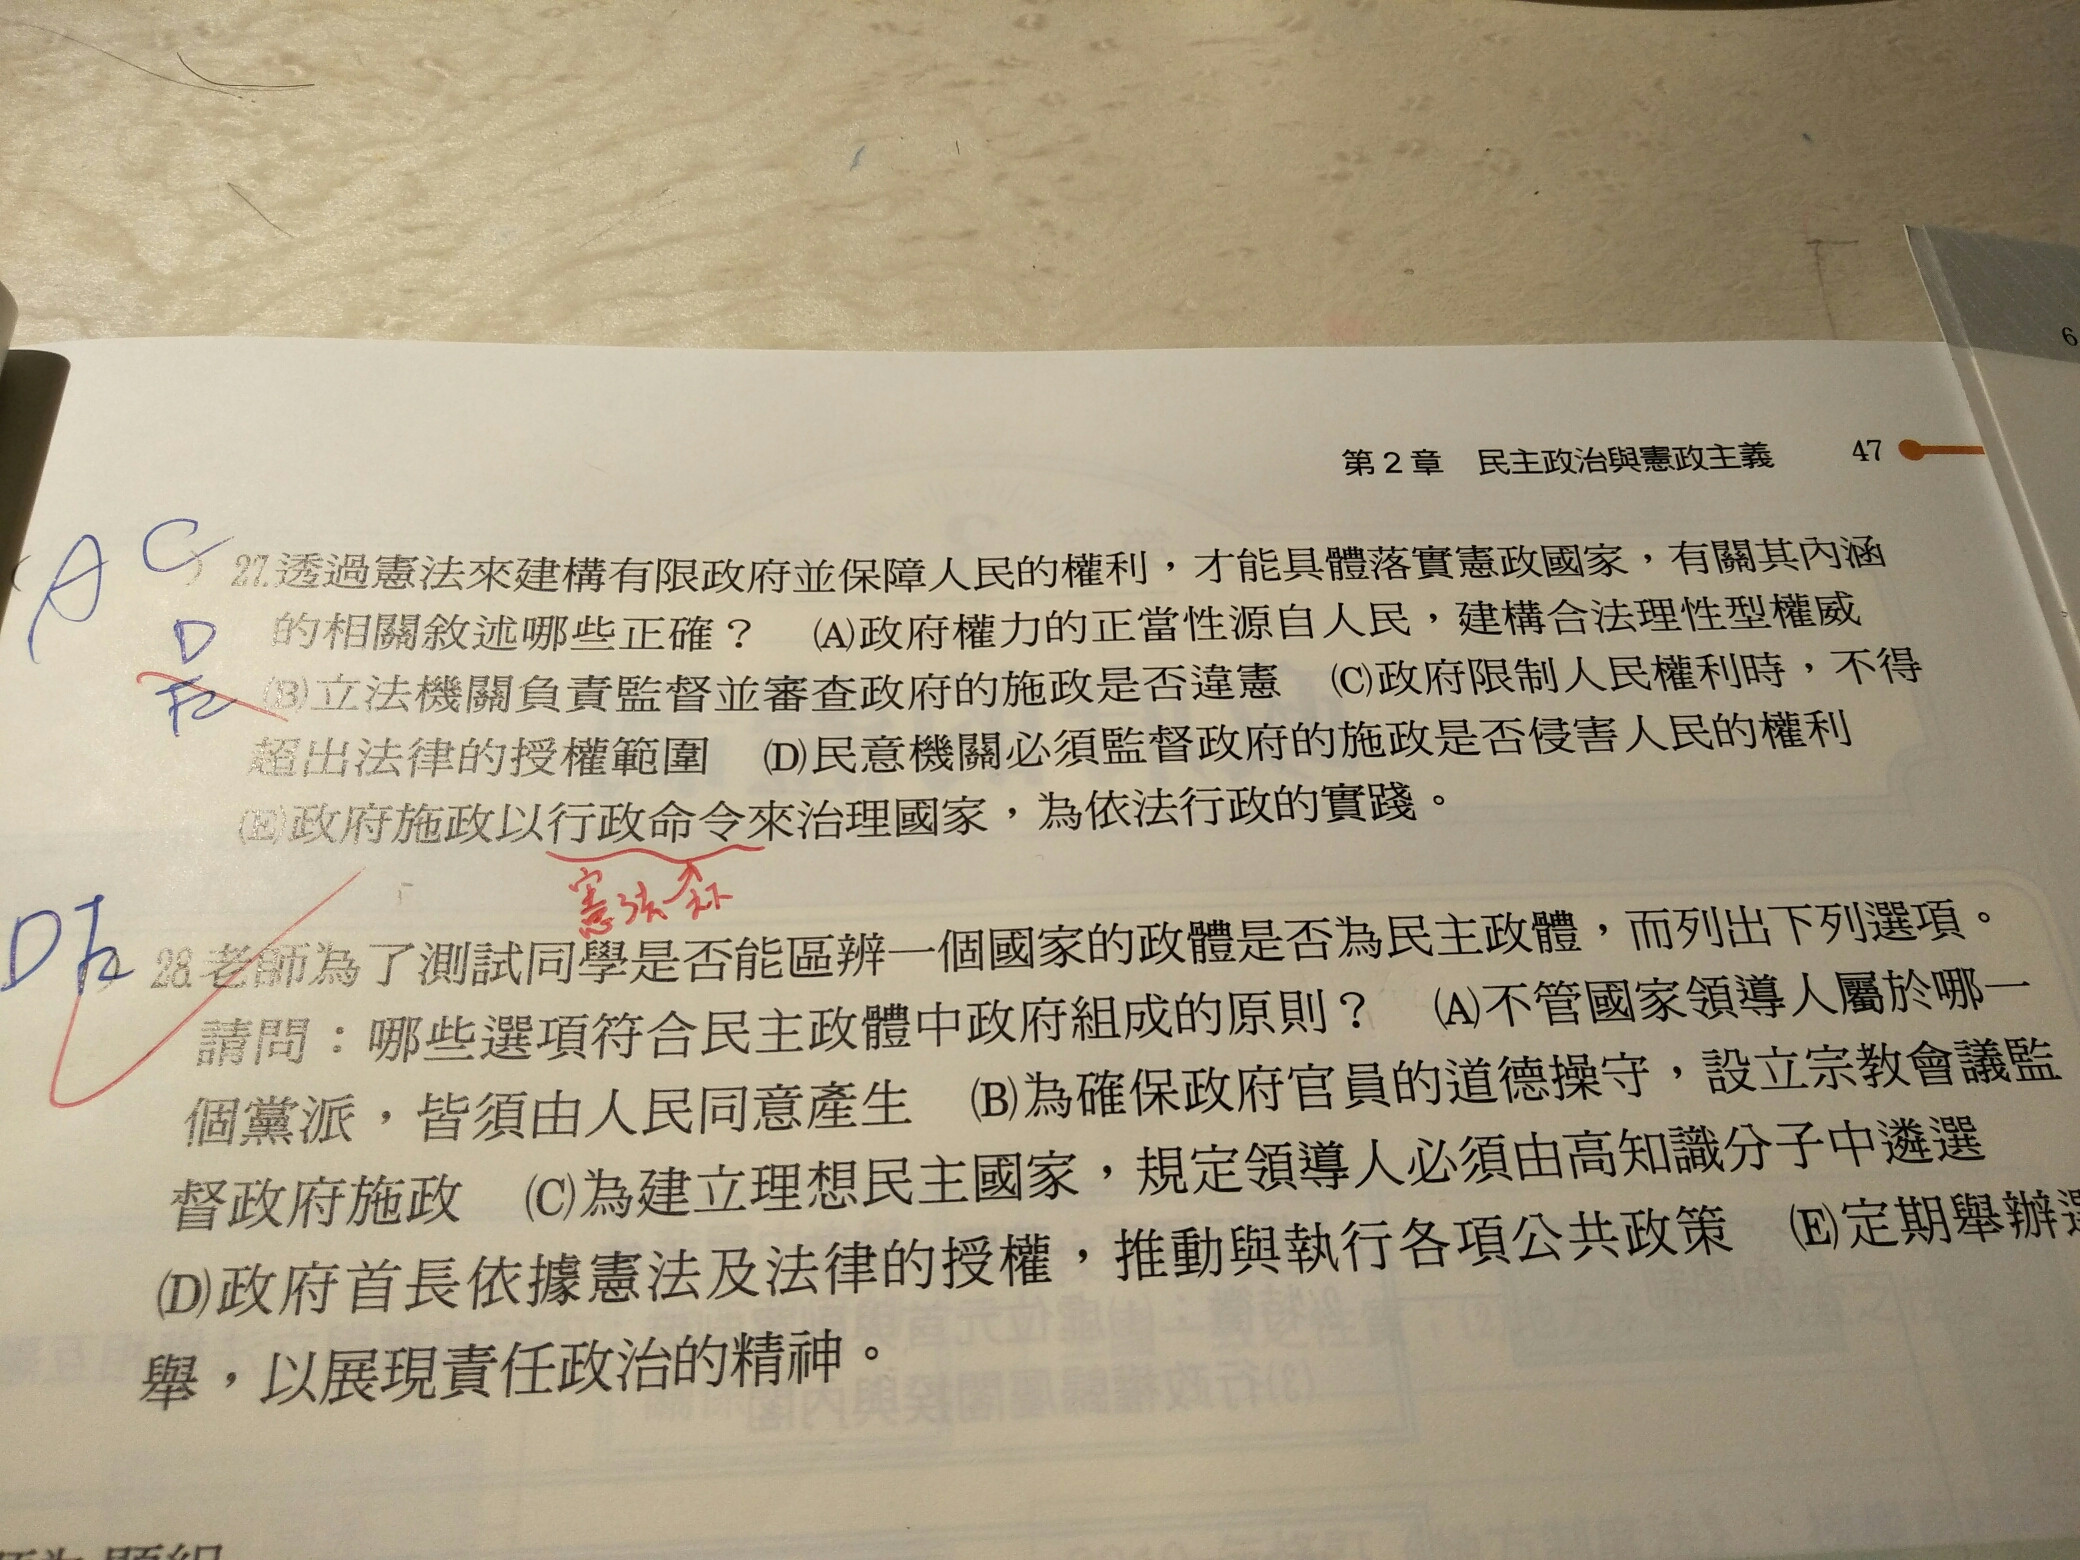 6
第2章 民主政治與憲政主義 47
A C
27.透過憲法來建構有限政府並保障人民的權利，才能具體落實憲政國家，有關其內涵
的相關敘述哪些正確？ (A)政府權力的正當性源自人民，建構合法理性型權威
D
(B)立法機關負責監督並審查政府的施政是否違憲 (C)政府限制人民權利時，不得
E
超出法律的授權範圍 (D)民意機關必須監督政府的施政是否侵害人民的權利
(E)政府施政以行政命令來治理國家，為依法行政的實踐。
憲法
DE
28.老師為了測試同學是否能區辨一個國家的政體是否為民主政體，而列出下列選項。
請問：哪些選項符合民主政體中政府組成的原則？ (A)不管國家領導人屬於哪一
個黨派，皆須由人民同意產生 (B)為確保政府官員的道德操守，設立宗教會議監
督政府施政 (C)為建立理想民主國家，規定領導人必須由高知識分子中遴選
(D)政府首長依據憲法及法律的授權，推動與執行各項公共政策 (E)定期舉辦選
舉，以展現責任政治的精神。